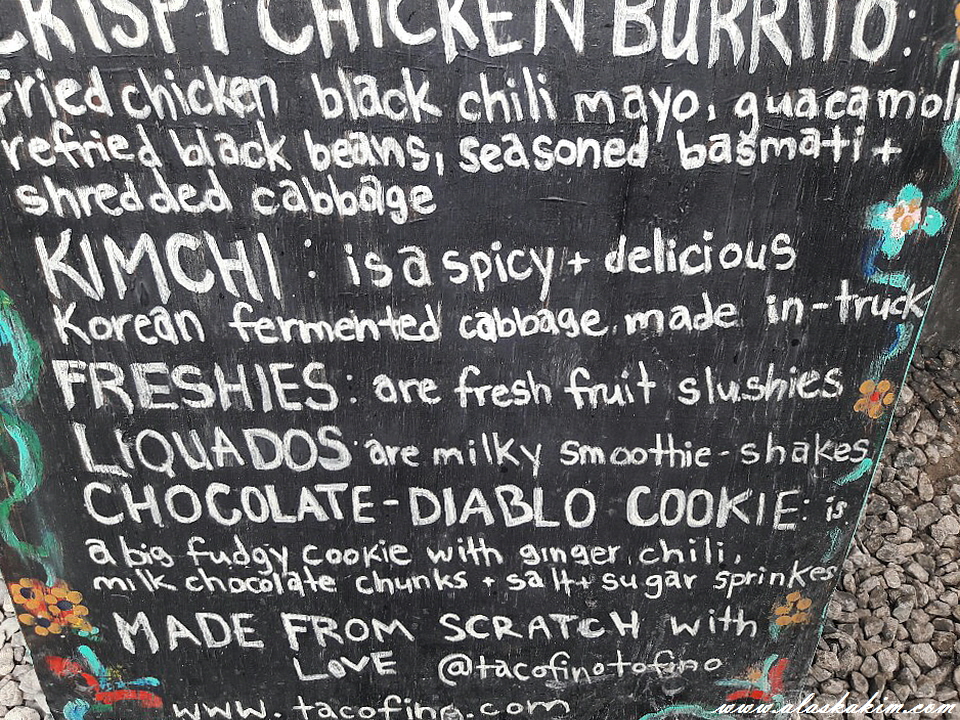 CRISPY CHICKEN BURRITO:
fried chicken black chili mayo, guacamol
refried black beans, seasoned basmati +
shredded cabbage
KIMCHI : is a spicy + delicious
Korean fermented cabbage, made in-truck
FRESHIES: are fresh fruit slushies
LIQUADOS are milky smoothie-shakes
CHOCOLATE-DIABLO COOKIE: is
a big fudgy cookie with ginger, chili,
milk chocolate chunks + salt + sugar sprinkes
MADE FROM SCRATCH with
LOVE @tacofinotofino
www.tacofino.com
www.alaskakim.com